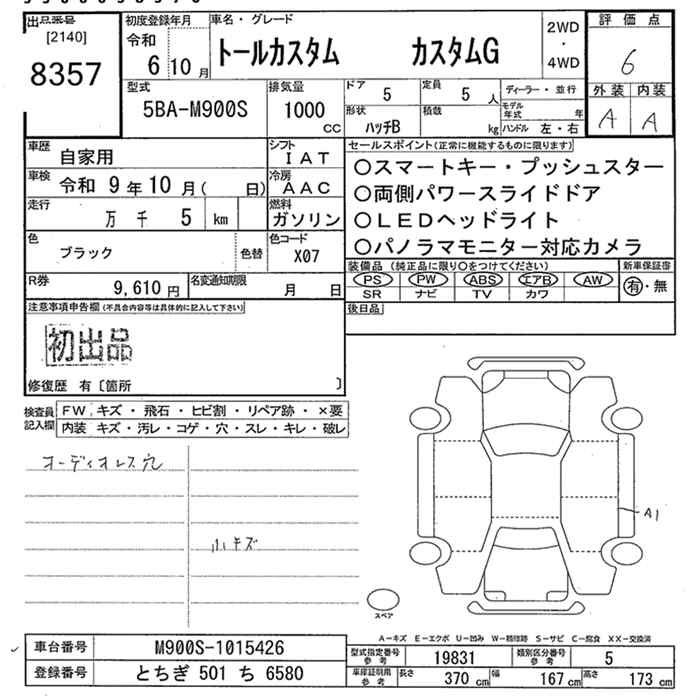 出品番号
[2140]
8357
初度登録年月
令和
6 10 月
車名・グレード
トールカスタム カスタムG
2WD
・
4WD
評価点
6
外装 内装
A A
型式
5BA-M900S
排気量
1000
cc
ドア
5
定員
5 人
形状
ハッチB
積載
kg
ディーラー・並行
モデル年式 年
ハンドル 左・右
車歴
自家用
シフト
IAT
車検
令和 9年10月( 日)
冷房
AAC
走行
万 千 5 km
燃料
ガソリン
色
ブラック
色替
色コード
X07
R券
9,610 円
名変通知期限
月 日
セールスポイント(正常に機能するものに限ります)
○スマートキー・プッシュスター
○両側パワースライドドア
○LEDヘッドライト
○パノラマモニター対応カメラ
装備品 (純正品に限り○をつけてください)
PS PW ABS エアB AW
SR ナビ TV カワ
新車保証書
有・無
後日品
注意事項申告欄(不具合内容等は具体的に記入して下さい)
初出品
修復歴 有〔箇所 〕
検査員記入欄
FW キズ・飛石・ヒビ割・リペア跡・×要
内装 キズ・汚レ・コゲ・穴・スレ・キレ・破レ
オーディオレス穴
小キズ
A1
スペア
A－キズ E－エクボ U－凹み W－補修跡 S－サビ C－腐食 XX－交換済
車台番号
M900S-1015426
登録番号
とちぎ 501 ち 6580
型式指定番号
参考
19831
類別区分番号
参考
5
車庫証明用
参考
長さ
370 cm
幅
167 cm
高さ
173 cm